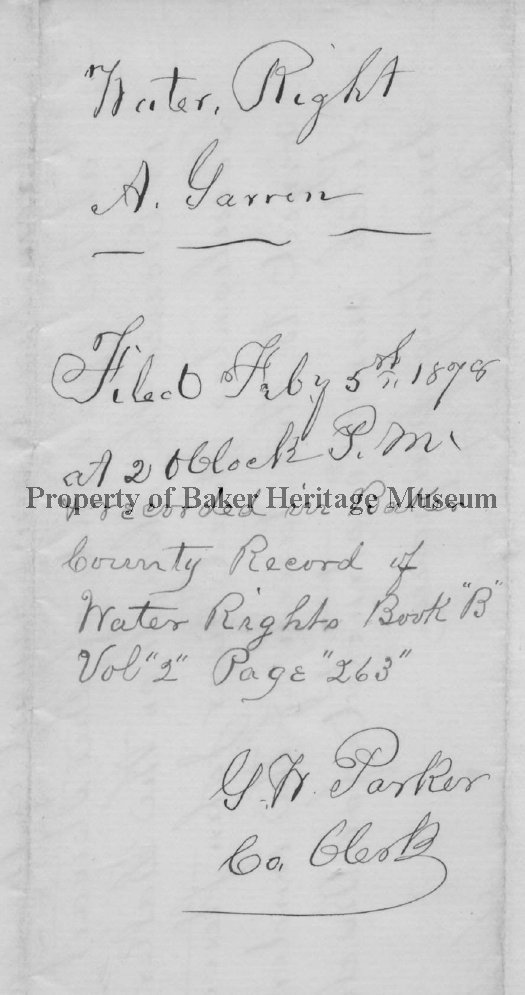 Water, Right
A. Garren
Filed Feby 5th, 1878
at 2 OClock P.M.
Property of Baker Heritage Museum
& recorded in Baker
County Record of
Water Rights Book "B"
Vol "2" Page "263"
G. W. Parker
Co. Clerk